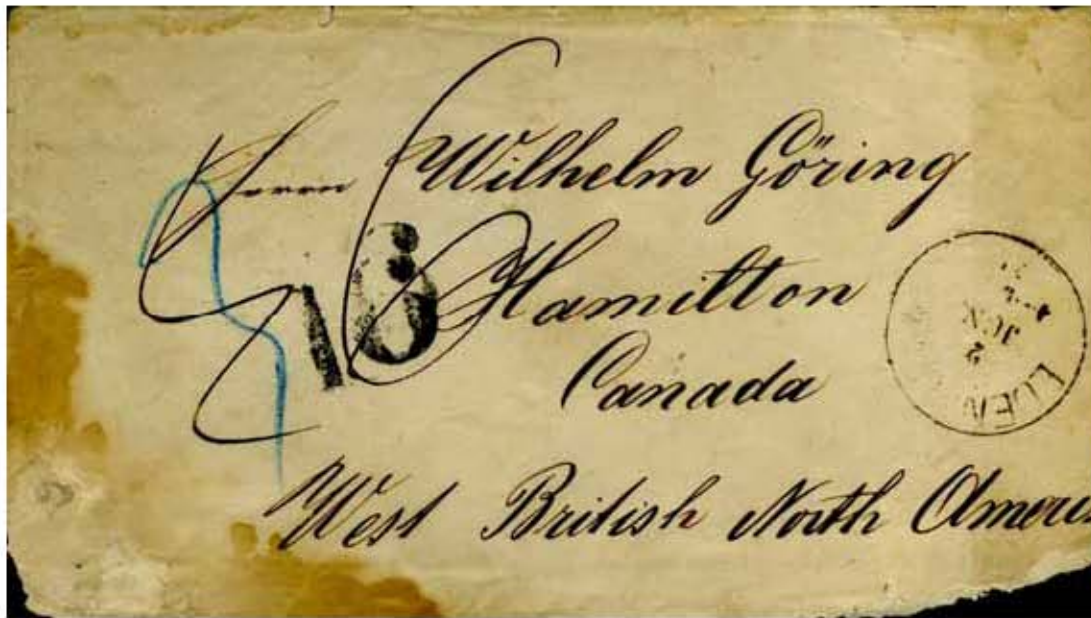 Herrn Wilhelm Göring
Hamilton
Canada
West British North Amer
16
2
JUN